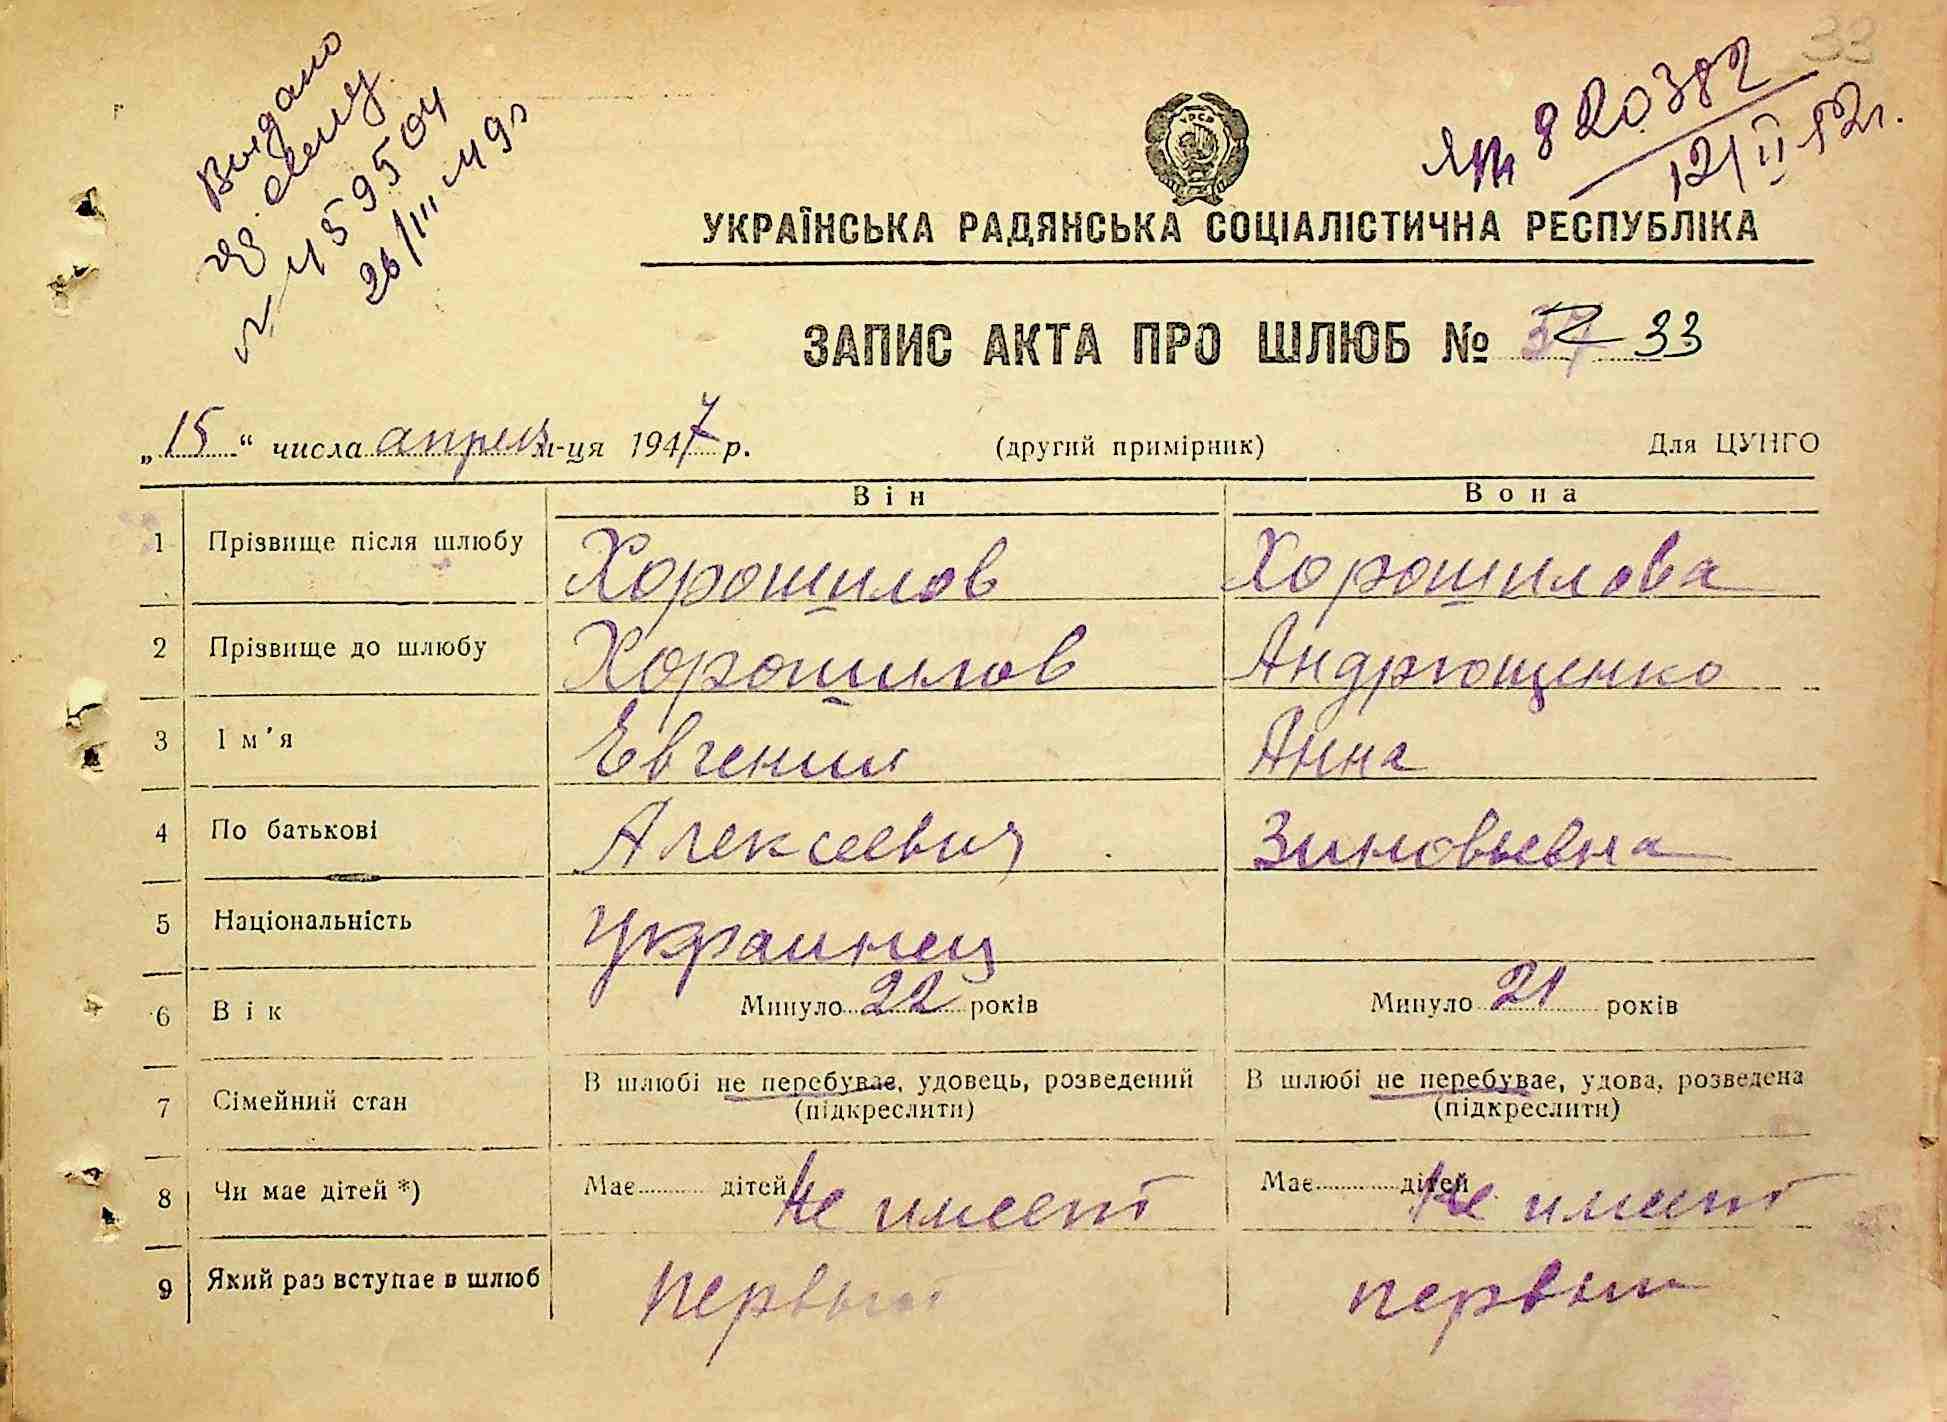 33
Выдано
26/III 49г
ЯМ 820382
12/II 52г.
УРСР
УКРАЇНСЬКА РАДЯНСЬКА СОЦІАЛІСТИЧНА РЕСПУБЛІКА
ЗАПИС АКТА ПРО ШЛЮБ № 33
„15“ числа апреля м-ця 1947 р. (другий примірник) Для ЦУНГО
Він Вона
1 Прізвище після шлюбу Хорошилов Хорошилова
2 Прізвище до шлюбу Хорошилов Андрющенко
3 Ім'я Евгений Анна
4 По батькові Алексеевич Зиновьевна
5 Національність Украинец
6 Вік Минуло 22 років Минуло 21 років
7 Сімейний стан В шлюбі не перебуває, удовець, розведений В шлюбі не перебуває, удова, розведена
(підкреслити) (підкреслити)
8 Чи має дітей *) Має дітей Не имеет Має дітей Не имеет
9 Який раз вступає в шлюб первый первый